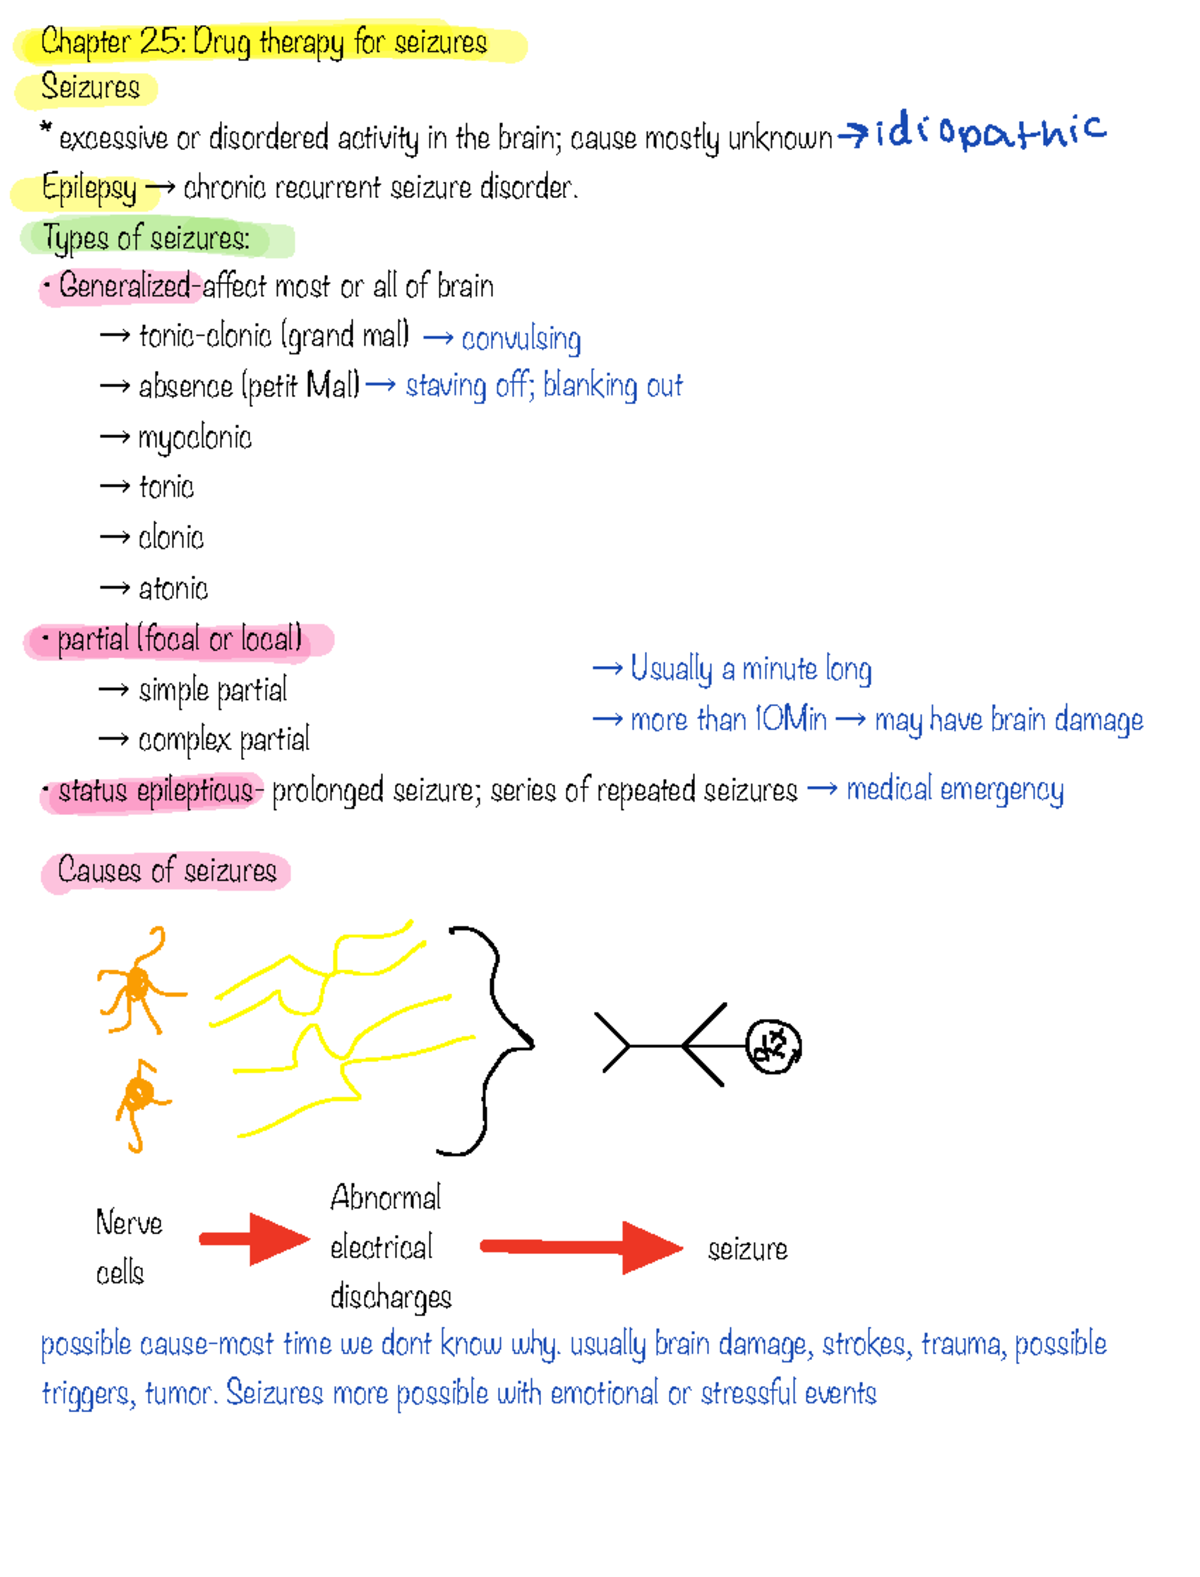 Chapter 25: Drug therapy for seizures
Seizures
* excessive or disordered activity in the brain; cause mostly unknown → idiopathic
Epilepsy → chronic recurrent seizure disorder.
Types of seizures:
• Generalized-affect most or all of brain
→ tonic-clonic (grand mal) → convulsing
→ absence (petit Mal) → staving off; blanking out
→ myoclonic
→ tonic
→ clonic
→ atonic
• partial (focal or local)
→ simple partial
→ complex partial
→ Usually a minute long
→ more than 10Min → may have brain damage
• status epilepticus- prolonged seizure; series of repeated seizures → medical emergency
Causes of seizures
Nerve
cells
Abnormal
electrical
discharges
seizure
possible cause-most time we dont know why. usually brain damage, strokes, trauma, possible
triggers, tumor. Seizures more possible with emotional or stressful events